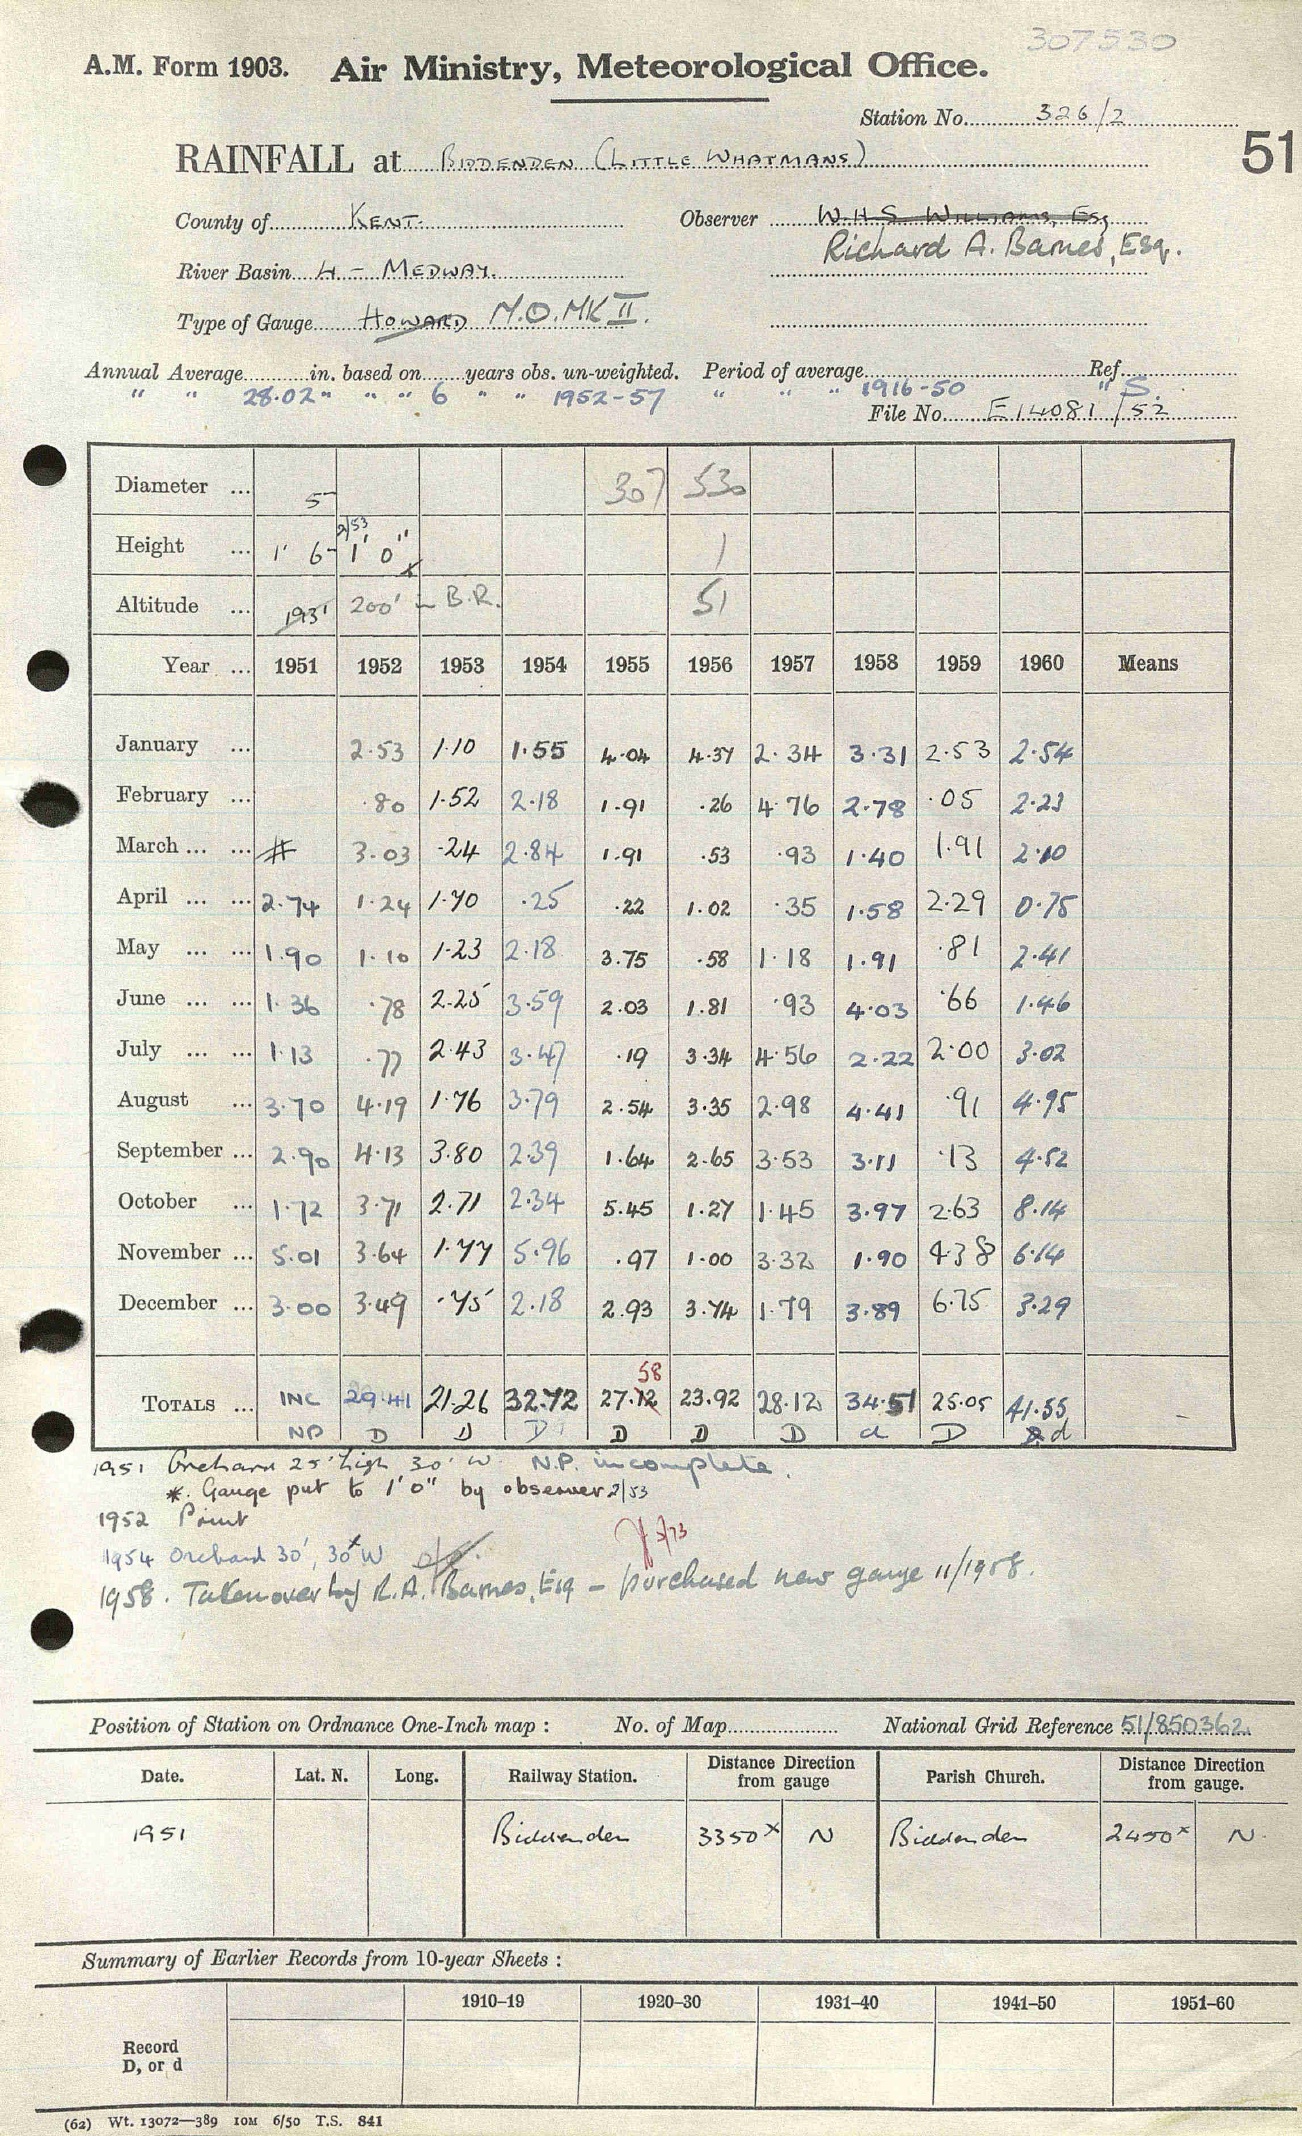 307530
A.M. Form 1903. Air Ministry, Meteorological Office.
Station No. 326/2
51
RAINFALL at BIDDENDEN (LITTLE WHATMANS)
County of KENT. Observer W.H.S. WILLIAMS, Esq
Richard A. Barnes, Esq.
River Basin 4 - MEDWAY.
Type of Gauge HOWARD M.O. MK II.
Annual Average in. based on years obs. un-weighted. Period of average Ref.
" " 28.02 " " " 6 " " 1952-57 " " " 1916-50 " S.
File No. E14081/52
Diameter ... 5 307 530
2/53
Height ... 1' 6 1' 0" x 1
Altitude ... 193' 200' in B.R. 51
Year ... 1951 1952 1953 1954 1955 1956 1957 1958 1959 1960 Means
January ... 2.53 1.10 1.55 4.04 4.37 2.34 3.31 2.53 2.54
February ... .80 1.52 2.18 1.91 .26 4.76 2.78 .05 2.23
March ... ... # 3.03 .24 2.84 1.91 .53 .93 1.40 1.91 2.10
April ... ... 2.74 1.24 1.70 .25 .22 1.02 .35 1.58 2.29 0.75
May ... ... 1.90 1.10 1.23 2.18 3.75 .58 1.18 1.91 .81 2.41
June ... ... 1.36 .78 2.25 3.59 2.03 1.81 .93 4.03 .66 1.46
July ... ... 1.13 .77 2.43 3.47 .19 3.34 4.56 2.22 2.00 3.02
August ... 3.70 4.19 1.76 3.79 2.54 3.35 2.98 4.41 .91 4.95
September ... 2.90 4.13 3.80 2.39 1.64 2.65 3.53 3.11 .13 4.52
October ... 1.72 3.71 2.71 2.34 5.45 1.27 1.45 3.97 2.63 8.14
November ... 5.01 3.64 1.77 5.96 .97 1.00 3.32 1.90 4.38 6.14
December ... 3.00 3.49 .75 2.18 2.93 3.74 1.79 3.89 6.75 3.29
58
TOTALS ... INC 29.41 21.26 32.72 27.12 23.92 28.12 34.51 25.05 41.55
NP D D D D D D d D d
1951 Orchard 25' high 30' W. N.P. incomplete.
*. Gauge put to 1'0" by observer 2/53
1952 Print
5/73
1954 Orchard 30', 30x W
1958. Taken over by R.A. Barnes, Esq - purchased new gauge 11/1958.
Position of Station on Ordnance One-Inch map : No. of Map National Grid Reference 51/850362.
Date. Lat. N. Long. Railway Station. Distance Direction from gauge Parish Church. Distance Direction from gauge.
1951 Biddenden 3350x N Biddenden 2450x N.
Summary of Earlier Records from 10-year Sheets :
1910-19 1920-30 1931-40 1941-50 1951-60
Record
D, or d
(62) Wt. 13072—389 10M 6/50 T.S. 841